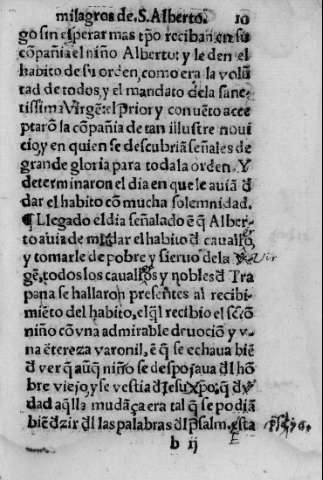 milagros de. S. Alberto. 10
go sin esperar mas tpo reciban en su
cõpañia el niño Alberto: y le den el
habito de su orden, como era la volũ
tad de todos, y el mandato dela sanc-
tissima Virgẽ: el Prior y conuẽto acce
ptarõ la cõpañia de tan illustre noui
cio, y en quien se descubriã señales de
grande gloria para toda la orden. Y
determinaron el dia en que le auiã đ
dar el habito cõ mucha solemnidad.
¶ Llegado el dia señalado ẽ q̃ Alber-
to auia de mudar el habito đ cauallo,
y tomarle de pobre y sieruo dela Vir
gẽ, todos los cauallos y nobles đ Tra
pana se hallaron presentes al recibi-
miẽto del habito, el q̃l recibio el scto
niño cõ vna admirable deuociõ y v-
na ẽtereza varonil, ẽ q̃ se echaua biẽ
đ ver q̃ auq̃ niño se despojaua đl hõ
bre viejo, y se vestia đ Jesuxpo: q̃ đ
dad aq̃lla mudãça era tal q̃ se podiã
biẽ đzir đl las palabras đl psalm. Esta
b ij